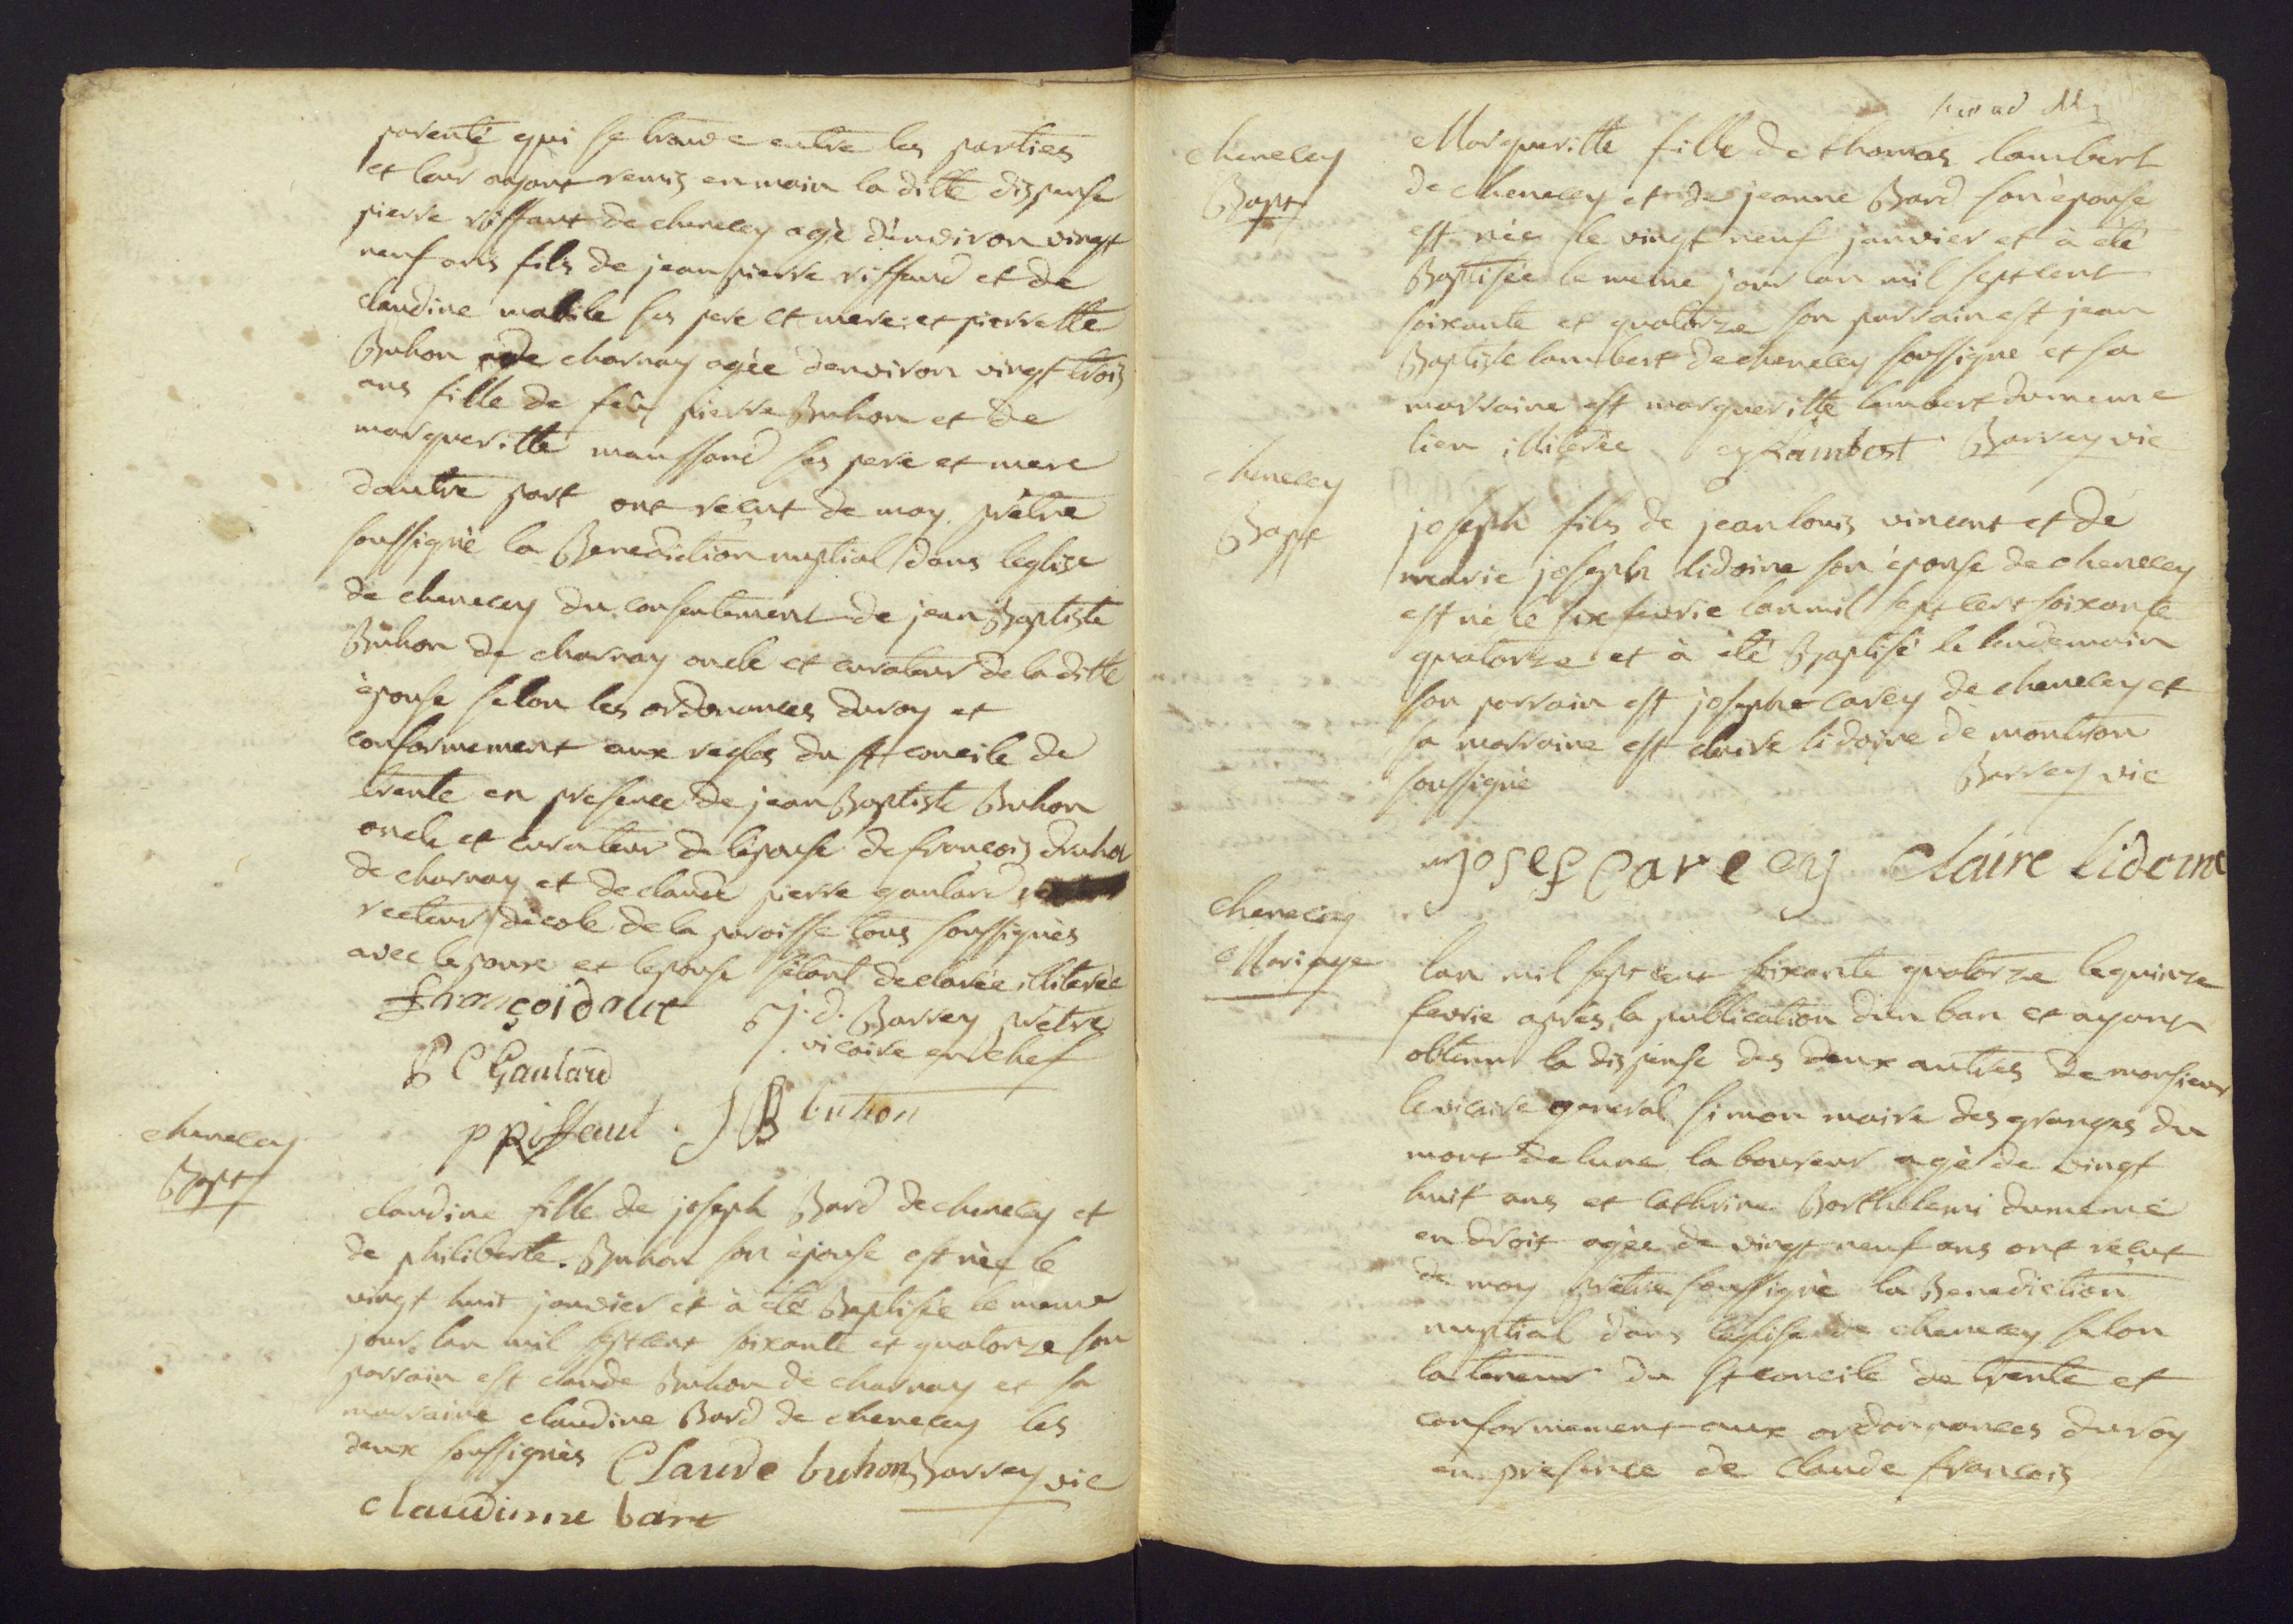 parenté qui se trouve entre les parties
et leur ayant remis en main la ditte dispense
pierre riffaut de chenecey agé d'environ vingt
neuf ans fils de jean pierre riffaud et de
claudine mabile ses pere et mere et pierrette
Buhon de charnay agée denviron vingt trois
ans fille de feu pierre Buhon et de
margueritte ses pere et mere
dautre part ont reçut de moy prêtre
soussigné la Benediction nuptial dans leglise
de chenecey du consentement de jean Baptiste
Buhon de charnay oncle et curateur de la ditte
épouse selon les ordonances du roy et
conformement aux regles du st concile de
trente en presence de jean Baptiste Buhon
oncle et curateur de lépouse de françois druhot
de charnay et de claude pierre gaulard
recteur d'écol de la paroisse tous soussignés
avec lepoux et lepouse sétant declarée illiterée
françoi
j. d. Barrey prêtre
vicaire en chef
P C Gaulard
p Riffaut
J B buhon
chenecey
Bapt
claudine fille de joseph Bard de chenecey et
de philiberte Buhon son épouse est née le
vingt huit janvier et à été Baptisée le meme
jour lan mil sept cent soixante et quatorze son
parrain est claude Buhon de charnay et sa
marraine claudine Bard de chenecey les
deux soussignés Claude buhon Barrey vic
claudinne bart
chenecey
Bapt
Margueritte fille de thomas lambert
de chenecey et de jeanne Bard son épouse
est née le vingt neuf janvier et à été
Baptisée le meme jour lan mil sept cent
soixante et quatorze son parrain est jean
Baptiste lambert de chenecey soussigne et sa
marraine est margueritte lambert du meme
lieu illiterée Lambert Barrey vic
chenecey
Bapt
joseph fils de jean louis vincent et de
marie joseph lidoine son épouse de chenecey
est né le six fevrie lan mil sept cent soixante
quatorze et à été Baptisé le lendemain
son parrain est joseph carey de chenecey et
sa marraine est claire lidoine de montron
soussigné Barrey vic
josef Carecy Claire Lidoine
chenecey
Mariage
lan mil sept cent soixante quatorze le quinze
fevrie aprés la publication dun ban et ayant
obtenu la dispense des deux autres de monsieur
le vicaire general simon maire des granges du
mont de lune laboureur agé de vingt
huit ans et cathrine Barthelemi du meme
endroit agée de vingt neuf ans ont reçut
de moy prêtre soussigné la Benediction
nuptial dans l'eglise de chenecey selon
la teneur du st concile de trente et
conformement aux ordonnances du roy
en presence de Claude françois